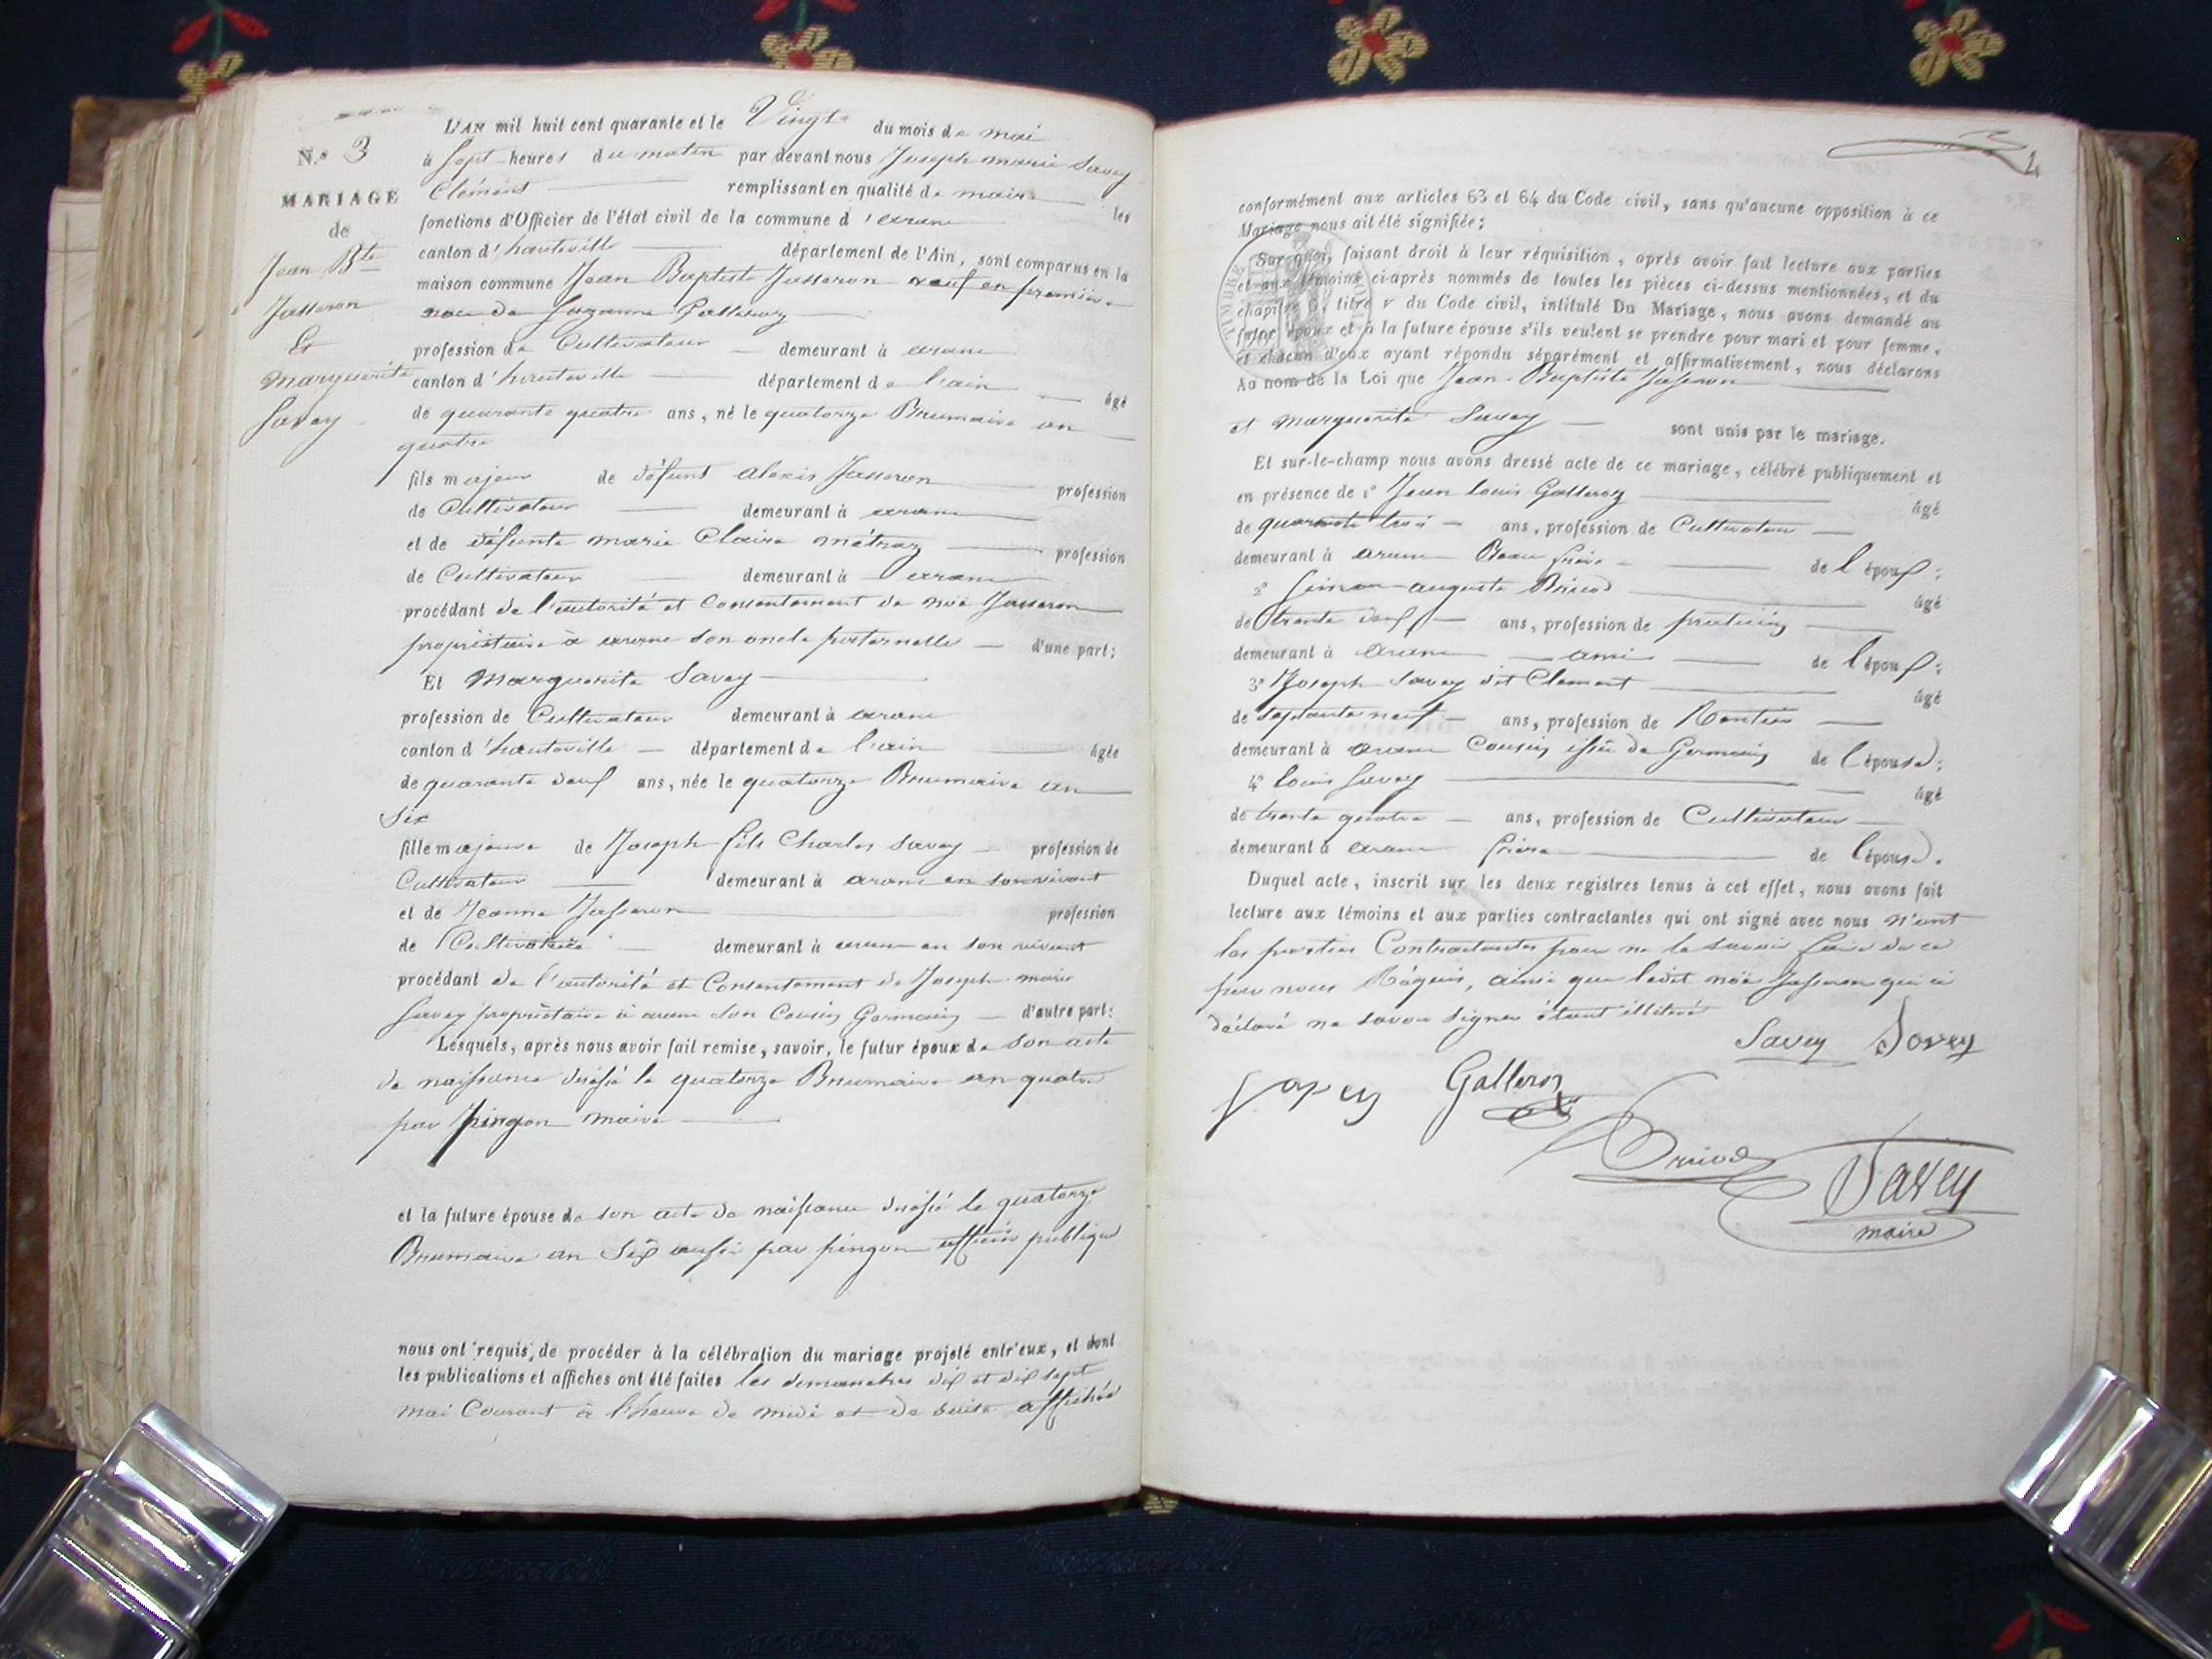 N.° 3
MARIAGE
de
Jean Bte
Jasseron
&
Marguerite
Savey
L'AN mil huit cent quarante et le Vingt du mois de mai
à sept heures du matin par devant nous Joseph marie Savey
Clément remplissant en qualité de maire les
fonctions d'Officier de l'état civil de la commune d'arane
canton d'hauteville département de l'Ain, sont comparus en la
maison commune Jean Baptiste Jasseron veuf en première
noce de Suzanne Galleroz
profession de Cultivateur demeurant à arane
canton d'hauteville département de l'ain âgé
de quarante quatre ans, né le quatorze Brumaire an
quatre
fils majeur de défunt alexis Jasseron profession
de Cultivateur demeurant à arane
et de défunte marie Claire métraz profession
de Cultivateur demeurant à arane
procédant de l'autorité et Consentement de noé Jasseron
propriétaire à arane son oncle paternelle d'une part;
Et Marguerite Savey
profession de Cultivateur demeurant à arane
canton d'hauteville département de l'ain âgée
de quarante deux ans, née le quatorze Brumaire an
Six
fille majeure de Joseph fils Charles Savey profession de
Cultivateur demeurant à arane en son vivant
et de Jeanne Jasseron profession
de Cultivatrice demeurant à arane en son vivant
procédant de l'autorité et Consentement de Joseph marie
Savey propriétaire à arane son Cousin Germain d'autre part:
Lesquels, après nous avoir fait remise, savoir, le futur époux de son acte
de naissance dréssé le quatorze Brumaire an quatre
par pingon maire
et la future épouse de son acte de naissance dréssé le quatorze
Brumaire an Six aussi par pingon officier publique
nous ont requis, de procéder à la célébration du mariage projeté entr'eux, et dont
les publications et affiches ont été faites les dimanches dix et dix sept
mai Courant à l'heure de midi et de suite affichés
4
conformément aux articles 63 et 64 du Code civil, sans qu'aucune opposition à ce
Mariage nous ait été signifiée;
Sur quoi, faisant droit à leur réquisition, après avoir fait lecture aux parties
et aux témoins ci-après nommés de toutes les pièces ci-dessus mentionnées, et du
chapitre 6, titre v du Code civil, intitulé Du Mariage, nous avons demandé au
futur époux et à la future épouse s'ils veulent se prendre pour mari et pour femme,
et chacun d'eux ayant répondu séparément et affirmativement, nous déclarons
Au nom de la Loi que Jean-Baptiste Jasseron
et marguerite Savey sont unis par le mariage.
Et sur-le-champ nous avons dressé acte de ce mariage, célébré publiquement et
en présence de 1° Jean louis Galleroz âgé
de quarante trois ans, profession de Cultivateur
demeurant à arane Beau frère de l'époux;
2° Simon auguste Brivod âgé
de trente deux ans, profession de praticien
demeurant à arane ami de l'époux;
3° Joseph Savey dit Clement âgé
de septante neuf ans, profession de Rentier
demeurant à arane Cousin issu de Germain de l'épouse;
4° louis Savey âgé
de trente quatre ans, profession de Cultivateur
demeurant à arane frère de l'épouse.
Duquel acte, inscrit sur les deux registres tenus à cet effet, nous avons fait
lecture aux témoins et aux parties contractantes qui ont signé avec nous n'ont
les parties Contractantes pour ne le savoir faire de ce
par nous Réquis, ainsi que ledit noé Jasseron qui a
déclaré ne savoir signer étant illitéré
Savey Savey
Savey Galleroz
Brivod
Savey
maire
TIMBRE ROYAL